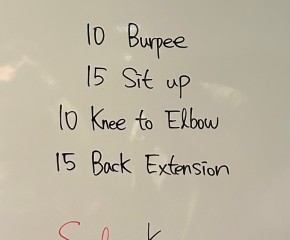 10 Burpee
15 Sit up
10 Knee to Elbow
15 Back Extension